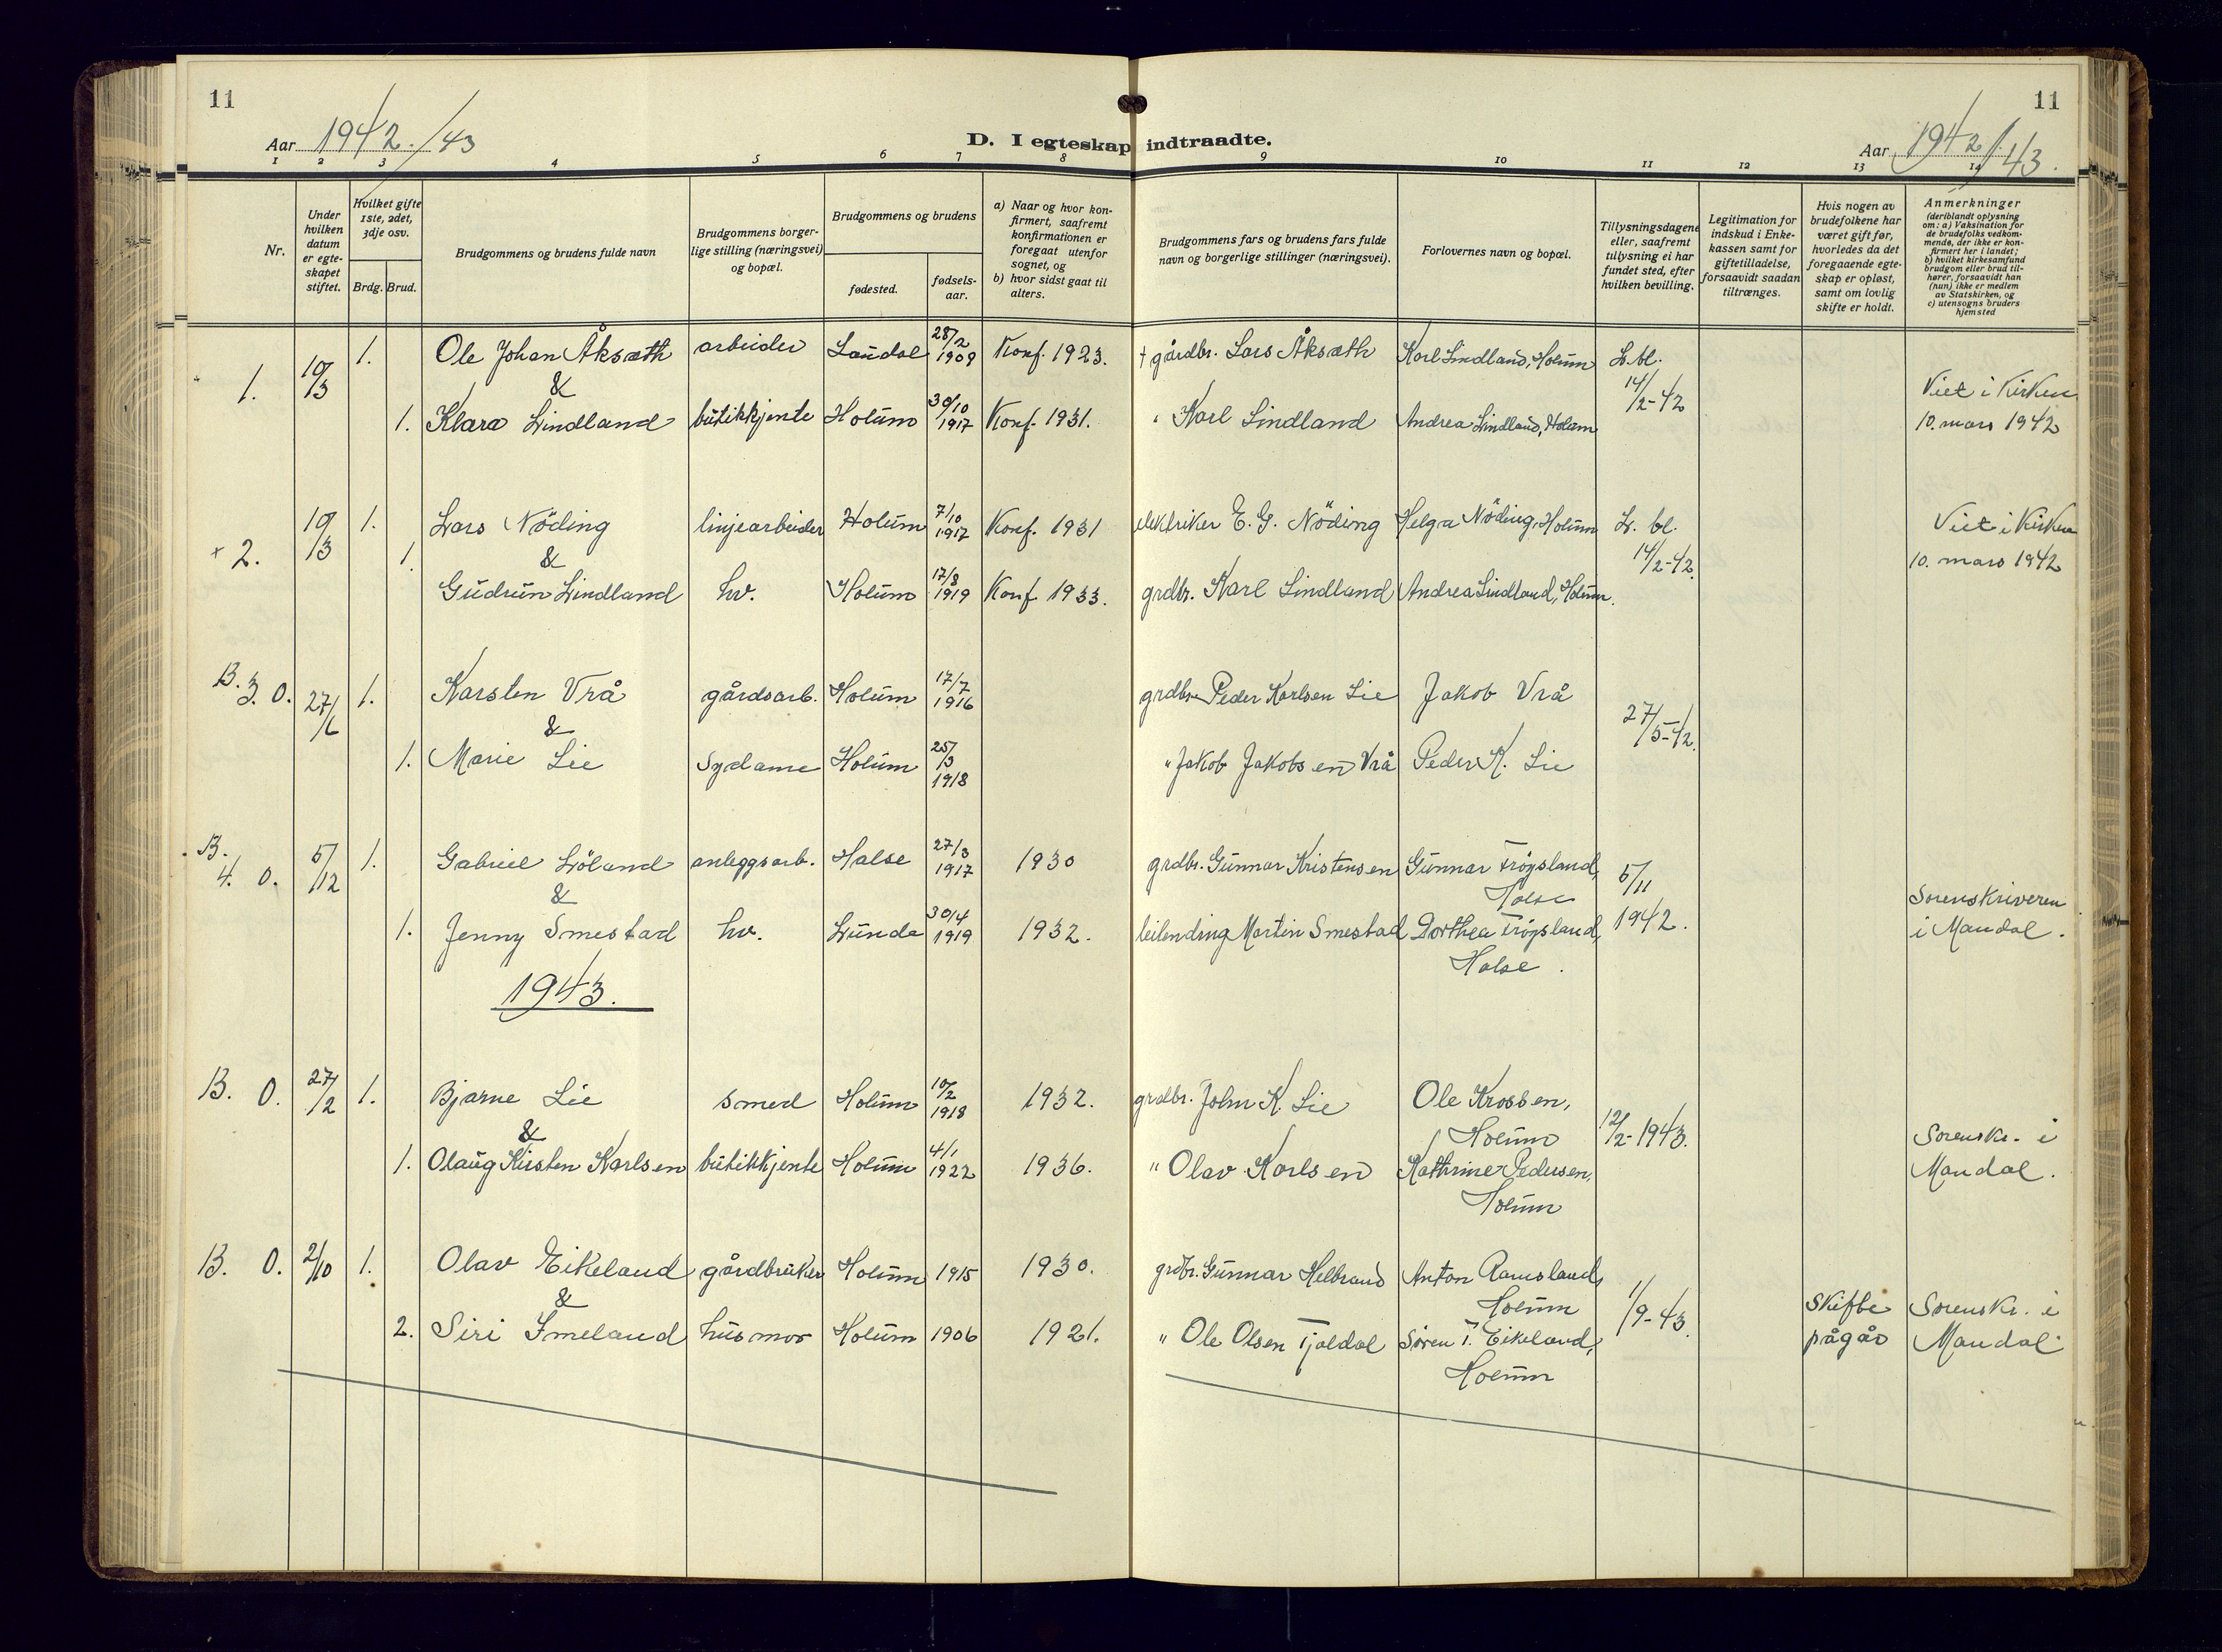 11
11
Aar 1942./43
D. I egteskap indtraadte.
Aar 1942/43.
1 2 3 4 5 6 7 8 9 10 11 12 13 14
Nr.
Under hvilken datum er egte-skapet stiftet.
Hvilket gifte 1ste, 2det, 3dje osv.
Brdg. Brud.
Brudgommens og brudens fulde navn
Brudgommens borger-lige stilling (næringsvei) og bopæl.
Brudgommens og brudens
fødested.
fødsels-aar.
a) Naar og hvor kon-firmert, saafremt konfirmationen er foregaat utenfor sognet, og
b) hvor sidst gaat til alters.
Brudgommens fars og brudens fars fulde navn og borgerlige stillinger (næringsvei).
Forlovernes navn og bopæl.
Tillysningsdagene eller, saafremt tillysning ei har fundet sted, efter hvilken bevilling.
Legitimation for indskud i Enke-kassen samt for giftetilladelse, forsaavidt saadan tiltrænges.
Hvis nogen av brudefolkene har været gift før, hvorledes da det foregaaende egte-skap er opløst, samt om lovlig skifte er holdt.
Anmerkninger
(deriblandt oplysning om: a) Vaksination for de brudefolks vedkom-mende, der ikke er kon-firmert her i landet; b) hvilket kirkesamfund brudgom eller brud til-hører, forsaavidt han (hun) ikke er medlem av Statskirken, og c) utensogns bruders hjemsted
1. 10/3 1. Ole Johan Åksæth arbeider Laudal 28/2 1909 Konf. 1923. † gårdbr. Lars Åksæth Karl Lindland, Holum L. bl. 14/2-42 Viet i Kirken 10. mars 1942
&
1. Klara Lindland butikkjente Holum 30/10 1917 Konf. 1931. " Karl Lindland Andrea Lindland, Holum
+ 2. 10/3 1. Lars Nöding linjearbeider Holum 7/10 1917 Konf. 1931 elektriker E. G. Nöding Helga Nöding, Holum L. bl. 14/2-42. Viet i Kirken 10. mars 1942
&
1. Gudrun Lindland hv. Holum 17/8 1919 Konf. 1933. grdbr. Karl Lindland Andrea Lindland, Holum.
B. 3. O. 27/6 1. Karsten Vrå gårdsarb. Holum 17/7 1916 grdbr. Peder Karlsen Lie Jakob Vrå 27/5-42.
&
1. Marie Lie sydame Holum 25/3 1918 " Jakob Jakobsen Vrå Peder K. Lie
B. 4. O. 5/12 1. Gabriel Löland anleggsarb. Halse 27/3 1917 1930 grdbr. Gunnar Kristensen Gunnar Frøysland, Halse 5/11 1942. Sorenskriveren i Mandal.
&
1. Jenny Smestad hv. Lunde 30/4 1919 1932. leilending Martin Smestad Dorthea Frøysland, Halse.
1943.
B. O. 27/2 1. Bjarne Lie smed Holum 10/2 1918 1932. grdbr. John K. Lie Ole Krossen, Holum 12/2-1943. Sorenskr. i Mandal.
&
1. Olaug Kirsten Karlsen butikkjente Holum 4/1 1922 1936. " Olav Karlsen Kathrine Pedersen, Holum
B. O. 2/10 1. Olav Eikeland gårdbruker Holum 1915 1930. grdbr. Gunnar Helbrand Anton Ramsland, Holum 1/9-43. skifte pågår Sorenskr. i Mandal
&
2. Siri Imeland husmor Holum 1906 1921. " Ole Olsen Tjaldal Søren T. Eikeland, Holum